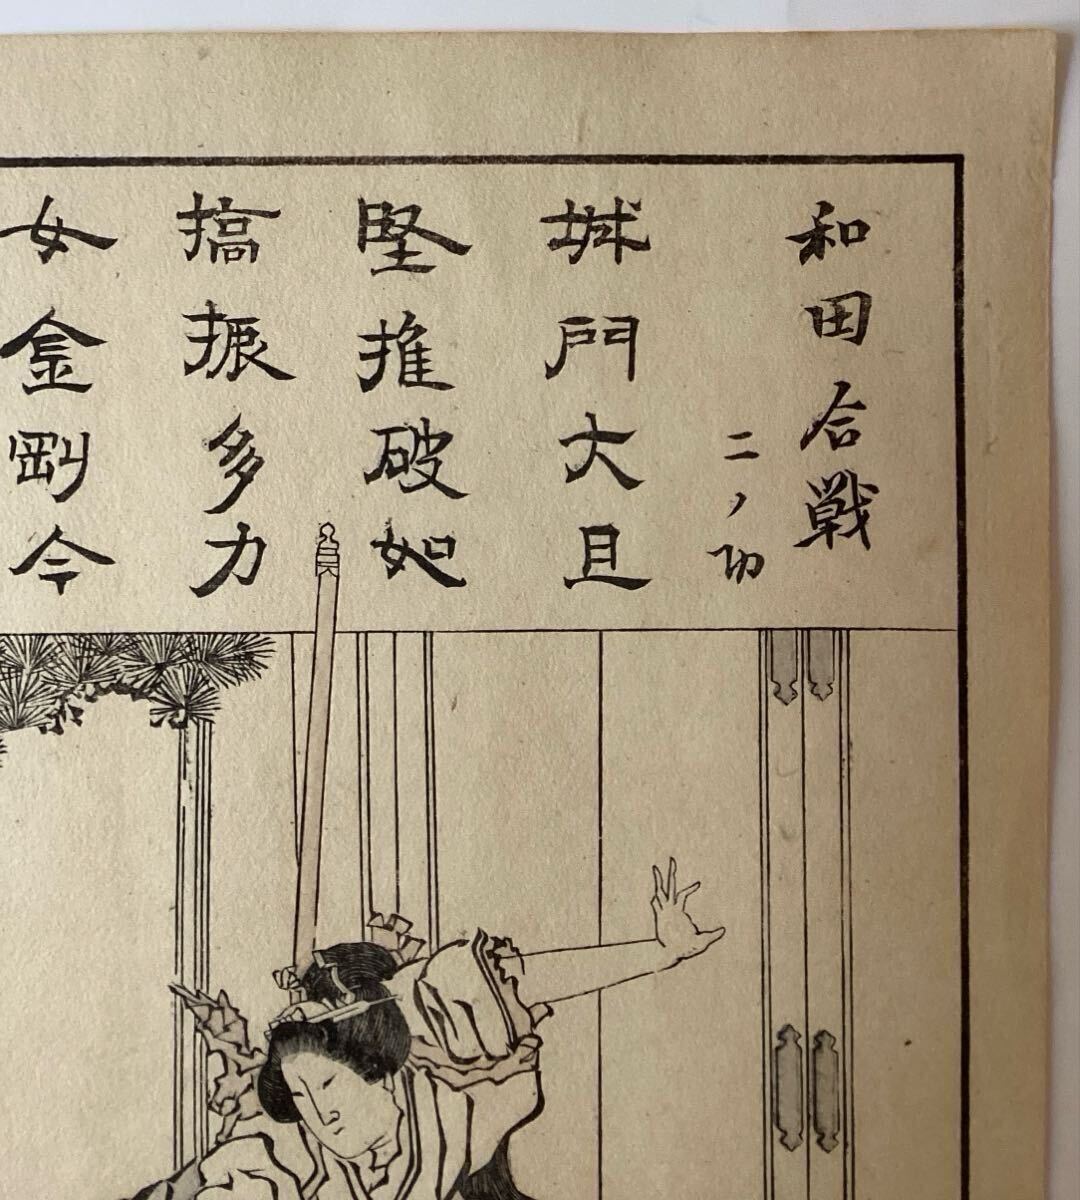 和田合戦
二ノ功
城門大且
堅推破如
搞振多力
女金剛今